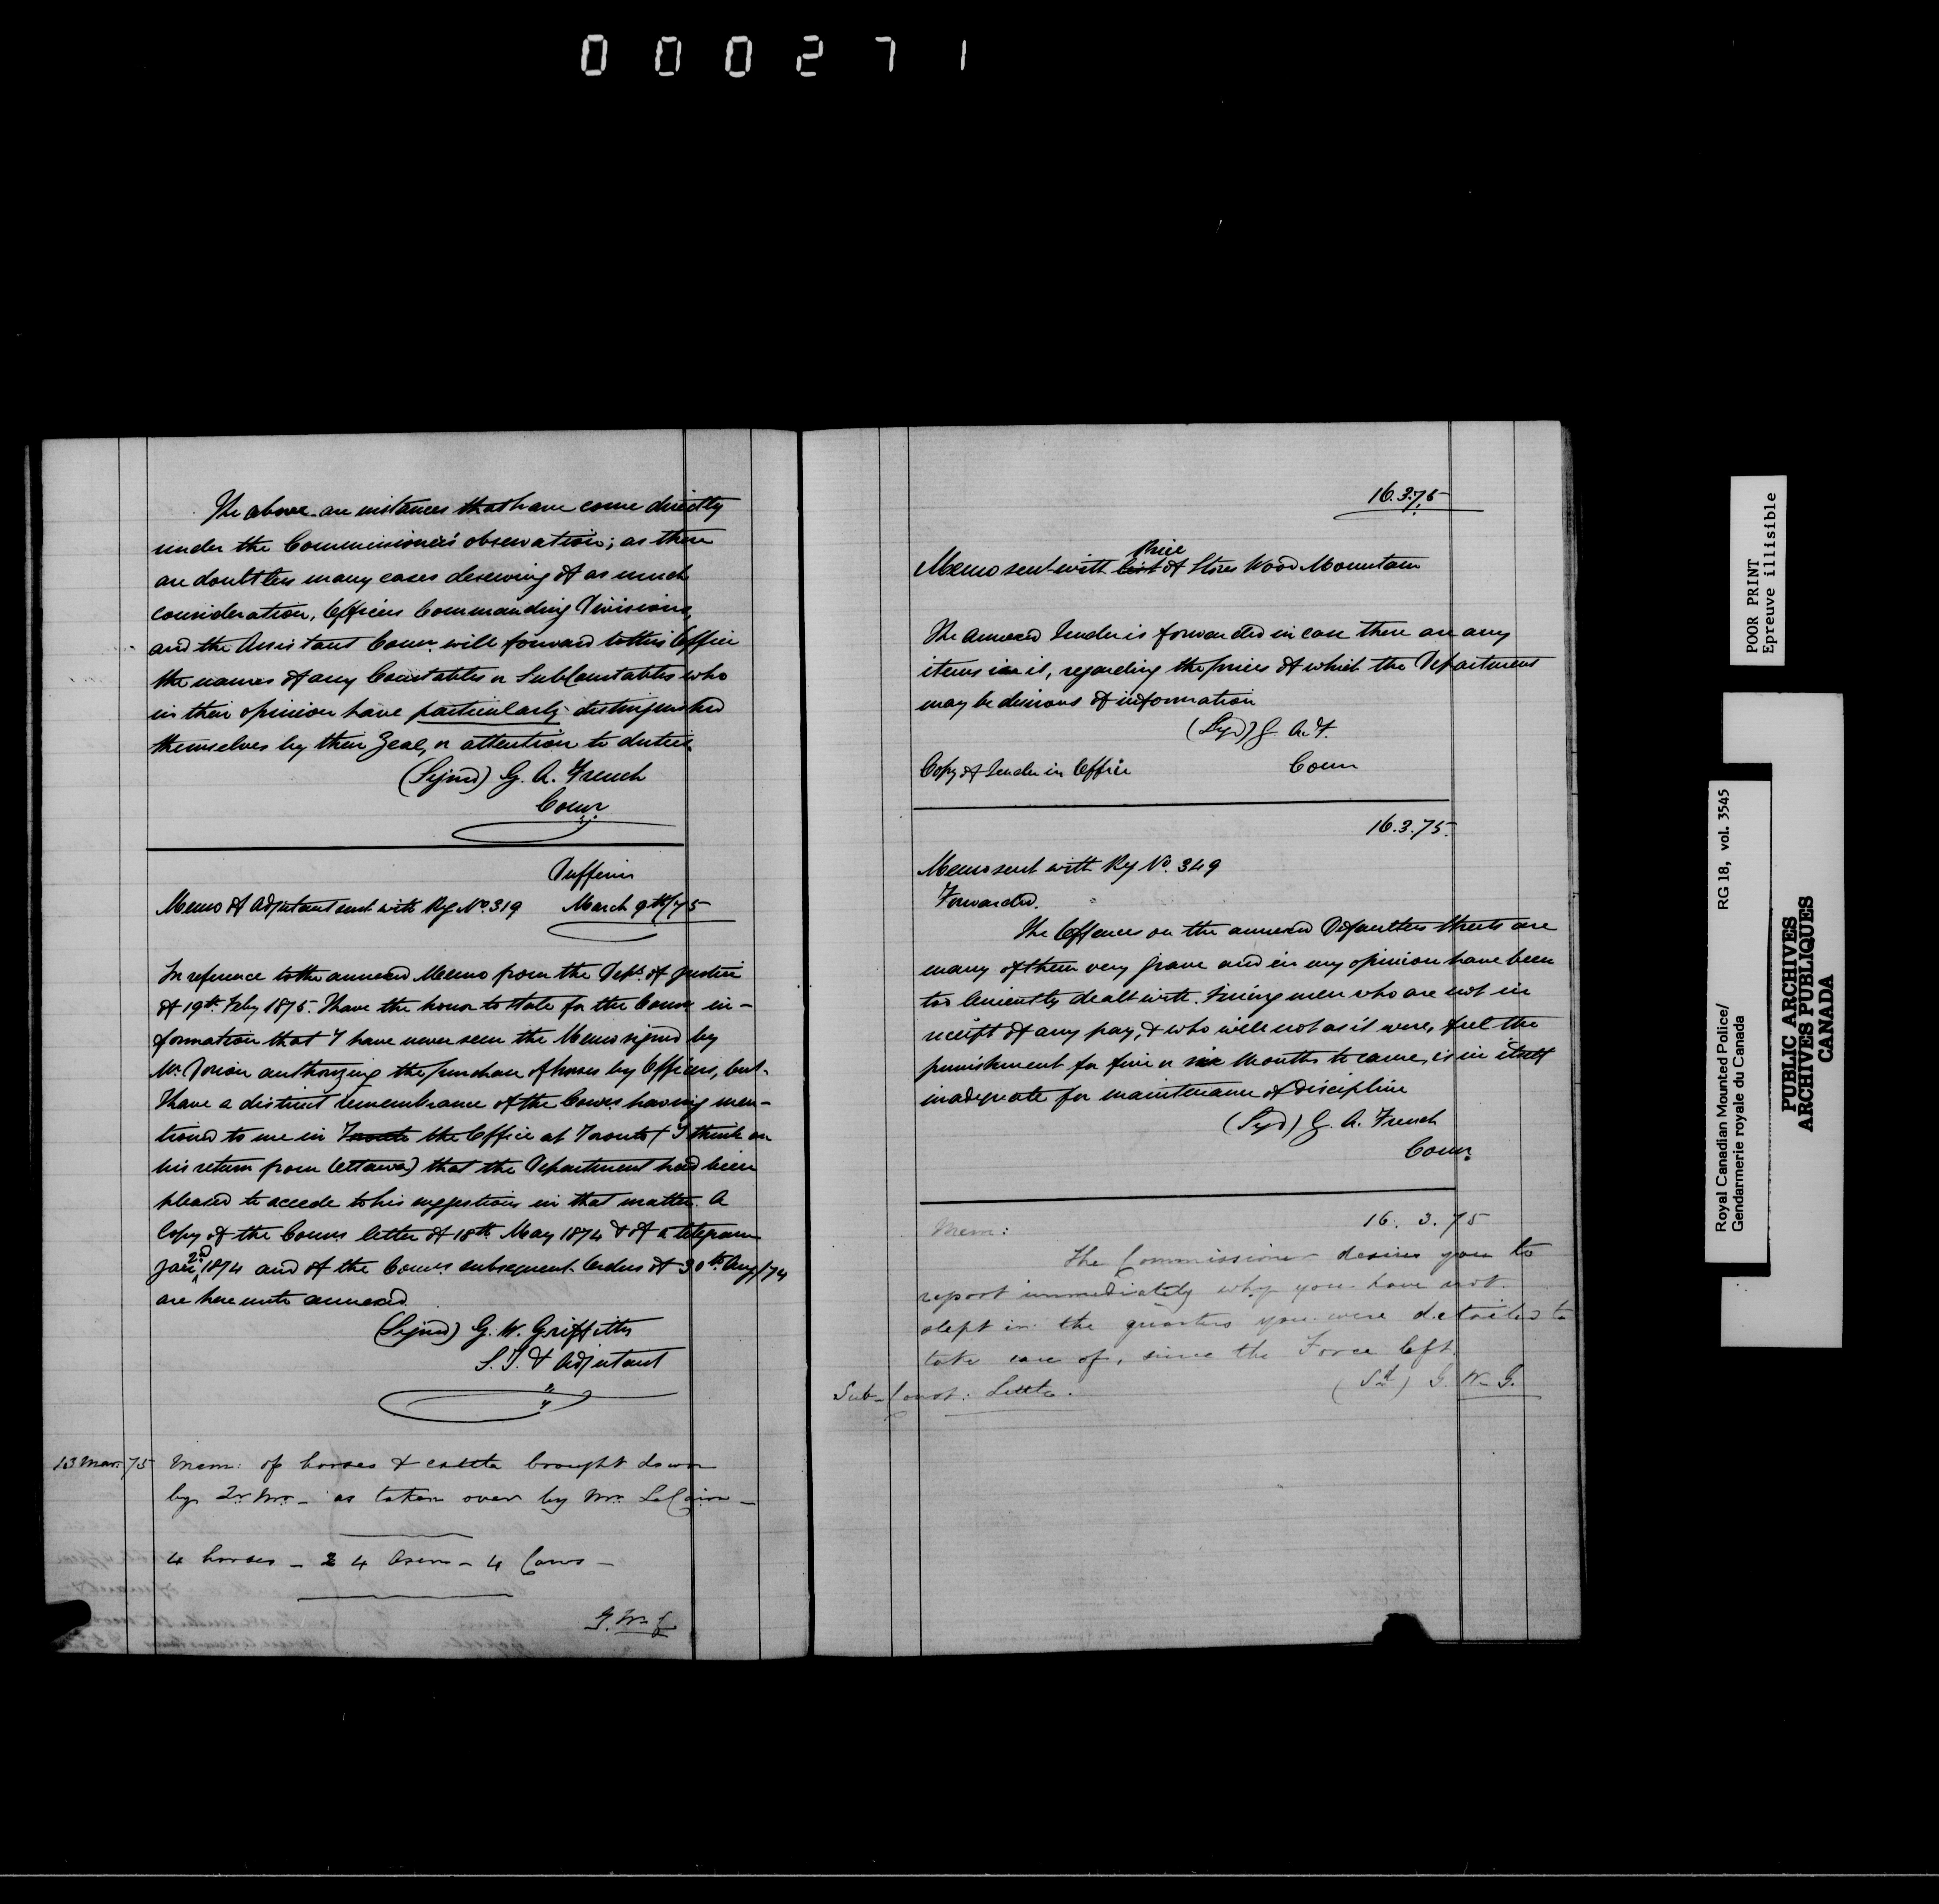 000271
The above are instances that have come directly
under the Commissioner's observation; as there
are doubtless many cases deserving of as much
consideration, Officers Commanding Divisions,
and the Assistant Comr. will forward to this Office
the names of any Constables or Sub Constables who
in their opinion have particularly distinguished
themselves by their Zeal, or attention to duties
(Signed) G. A. French
Comr.
Dufferin
Memo of Adjutant sent with Reg No. 319 March 9th/75
In reference to the annexed Memo from the Dept. of Justice
of 19th Feby 1875. I have the honor to state for the Comrs in-
formation that I have never seen the Memo signed by
Mr. Dorion authorizing the purchase of horses by Officers, but
I have a distinct remembrance of the Comr. having men-
tioned to me in Toronto the Office at Toronto (I think on
his return from Ottawa) that the Department had been
pleased to accede to his suggestions in that matter. A
Copy of the Comrs letter of 18th May 1874 & of a telegram
2nd
1874 and of the Comrs. subsequent Orders of 30th Aug/74
are here unto annexed.
(Signed) G. W. Griffiths
S. I. & Adjutant
13 Mar. 75 Mem: of horses & cattle brought down
by Qr. Mr. - as taken over by Mr. LeCain -
4 horses - 24 Oxen - 4 Cows -
16.3.75
Price
Memo sent with List of Stores Wood Mountain
The annexed Tender is forwarded in case there are any
items in it, regarding the prices of which the Department
may be desirous of information
(Sgd) G. A. F.
Copy of Tender in Office Comr
16.3.75.
Memo sent with Reg No. 349
Forwarded.
The Offences on the annexed Defaulters Sheets are
many of them very grave and in my opinion have been
too leniently dealt with. Fining men who are not in
receipt of any pay, & who will not as it were, feel the
punishment for five or six Months to come, is in itself
inadequate for maintenance of discipline
(Sgd) G. A. French
Comr.
16. 3. 75
Mem:
The Commissioner desires you to
report immediately why you have not
slept in the quarters you were detailed to
take care of, since the Force left.
Sub-Const: Little. (Sd) G. W. G.
POOR PRINT
Epreuve illisible
Royal Canadian Mounted Police/ RG 18, vol. 3545
Gendarmerie royale du Canada
PUBLIC ARCHIVES
ARCHIVES PUBLIQUES
CANADA